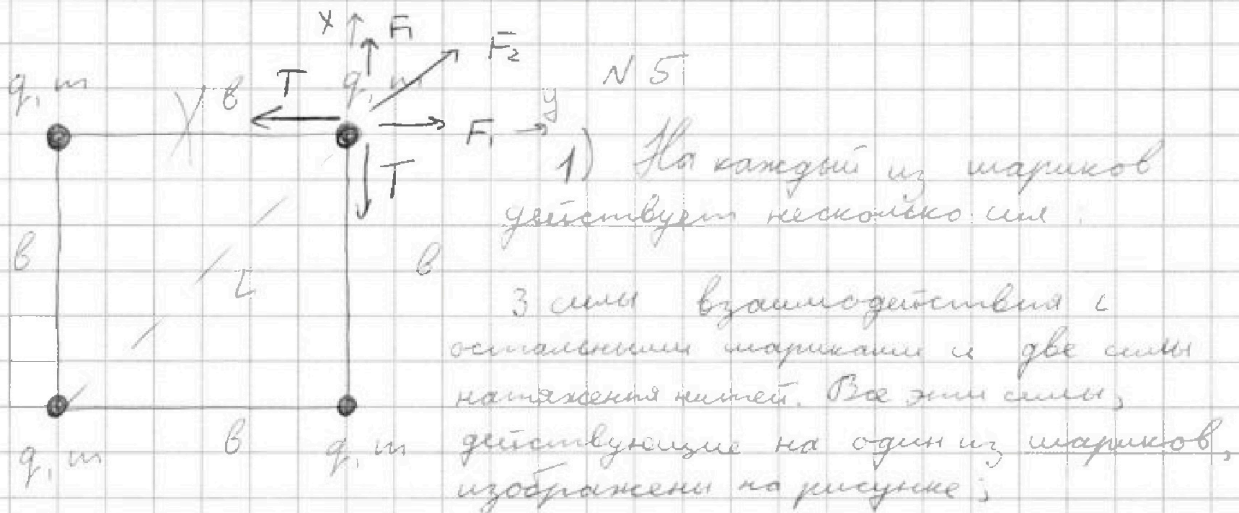 x F₁
F₂
q, m T в q, m № 5
F₁ y
1) На каждый из шариков
T
действует несколько сил.
в L в
3 силы взаимодействия с
остальными шариками и две силы
натяжения нитей. Все эти силы,
q, m в q, m действующие на один из шариков,
изображены на рисунке;